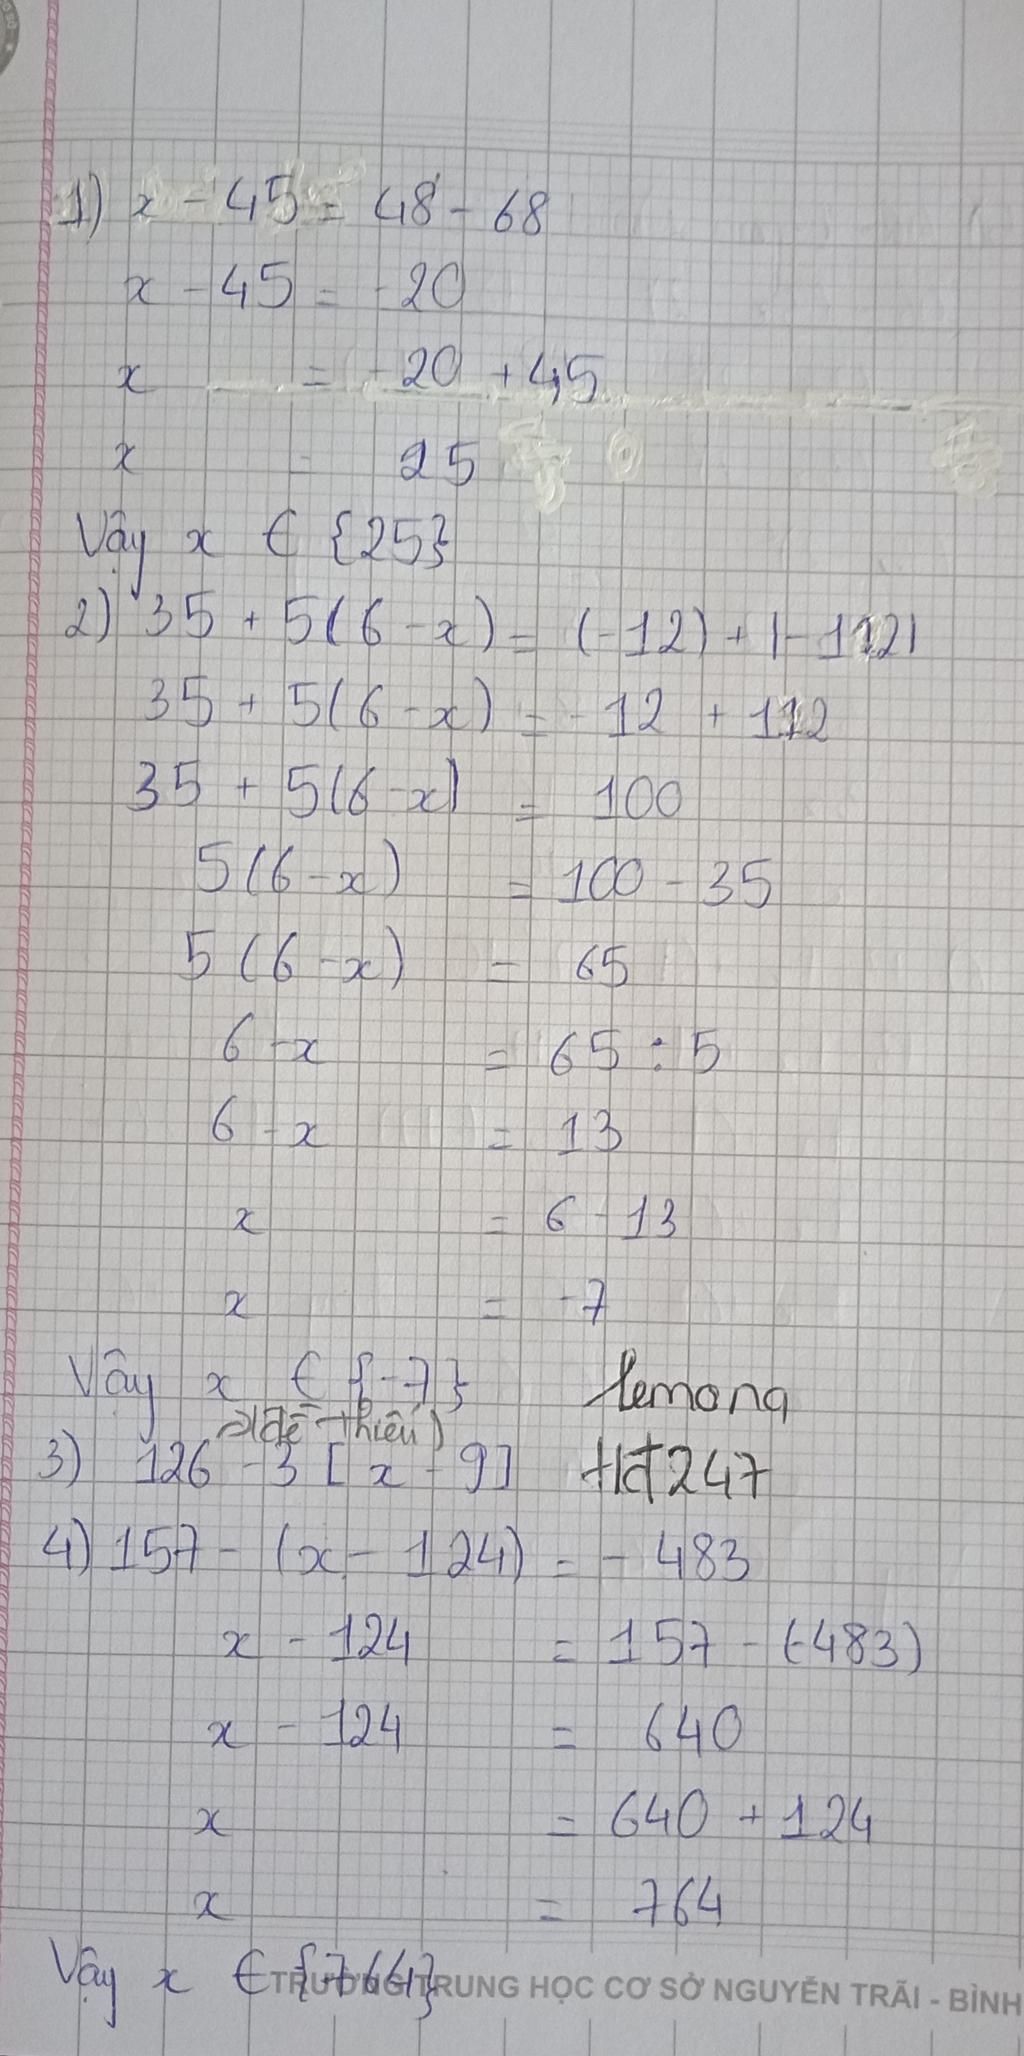 1) x - 45 = 48 - 68
x - 45 = -20
x = -20 + 45
x = 25
Vậy x ∈ {25}
2) 35 + 5(6 - x) = (-12) + |-112|
35 + 5(6 - x) = -12 + 112
35 + 5(6 - x) = 100
5(6 - x) = 100 - 35
5(6 - x) = 65
6 - x = 65 : 5
6 - x = 13
x = 6 - 13
x = -7
Vậy x ∈ {-7}
lemong
(đề thiếu)
3) 126 - 3 [x - 9]
Hđ247
4) 157 - (x - 124) = - 483
x - 124 = 157 - (-483)
x - 124 = 640
x = 640 + 124
x = 764
Vậy x ∈ {764}
TRƯỜNG TRUNG HỌC CƠ SỞ NGUYỄN TRÃI - BÌNH